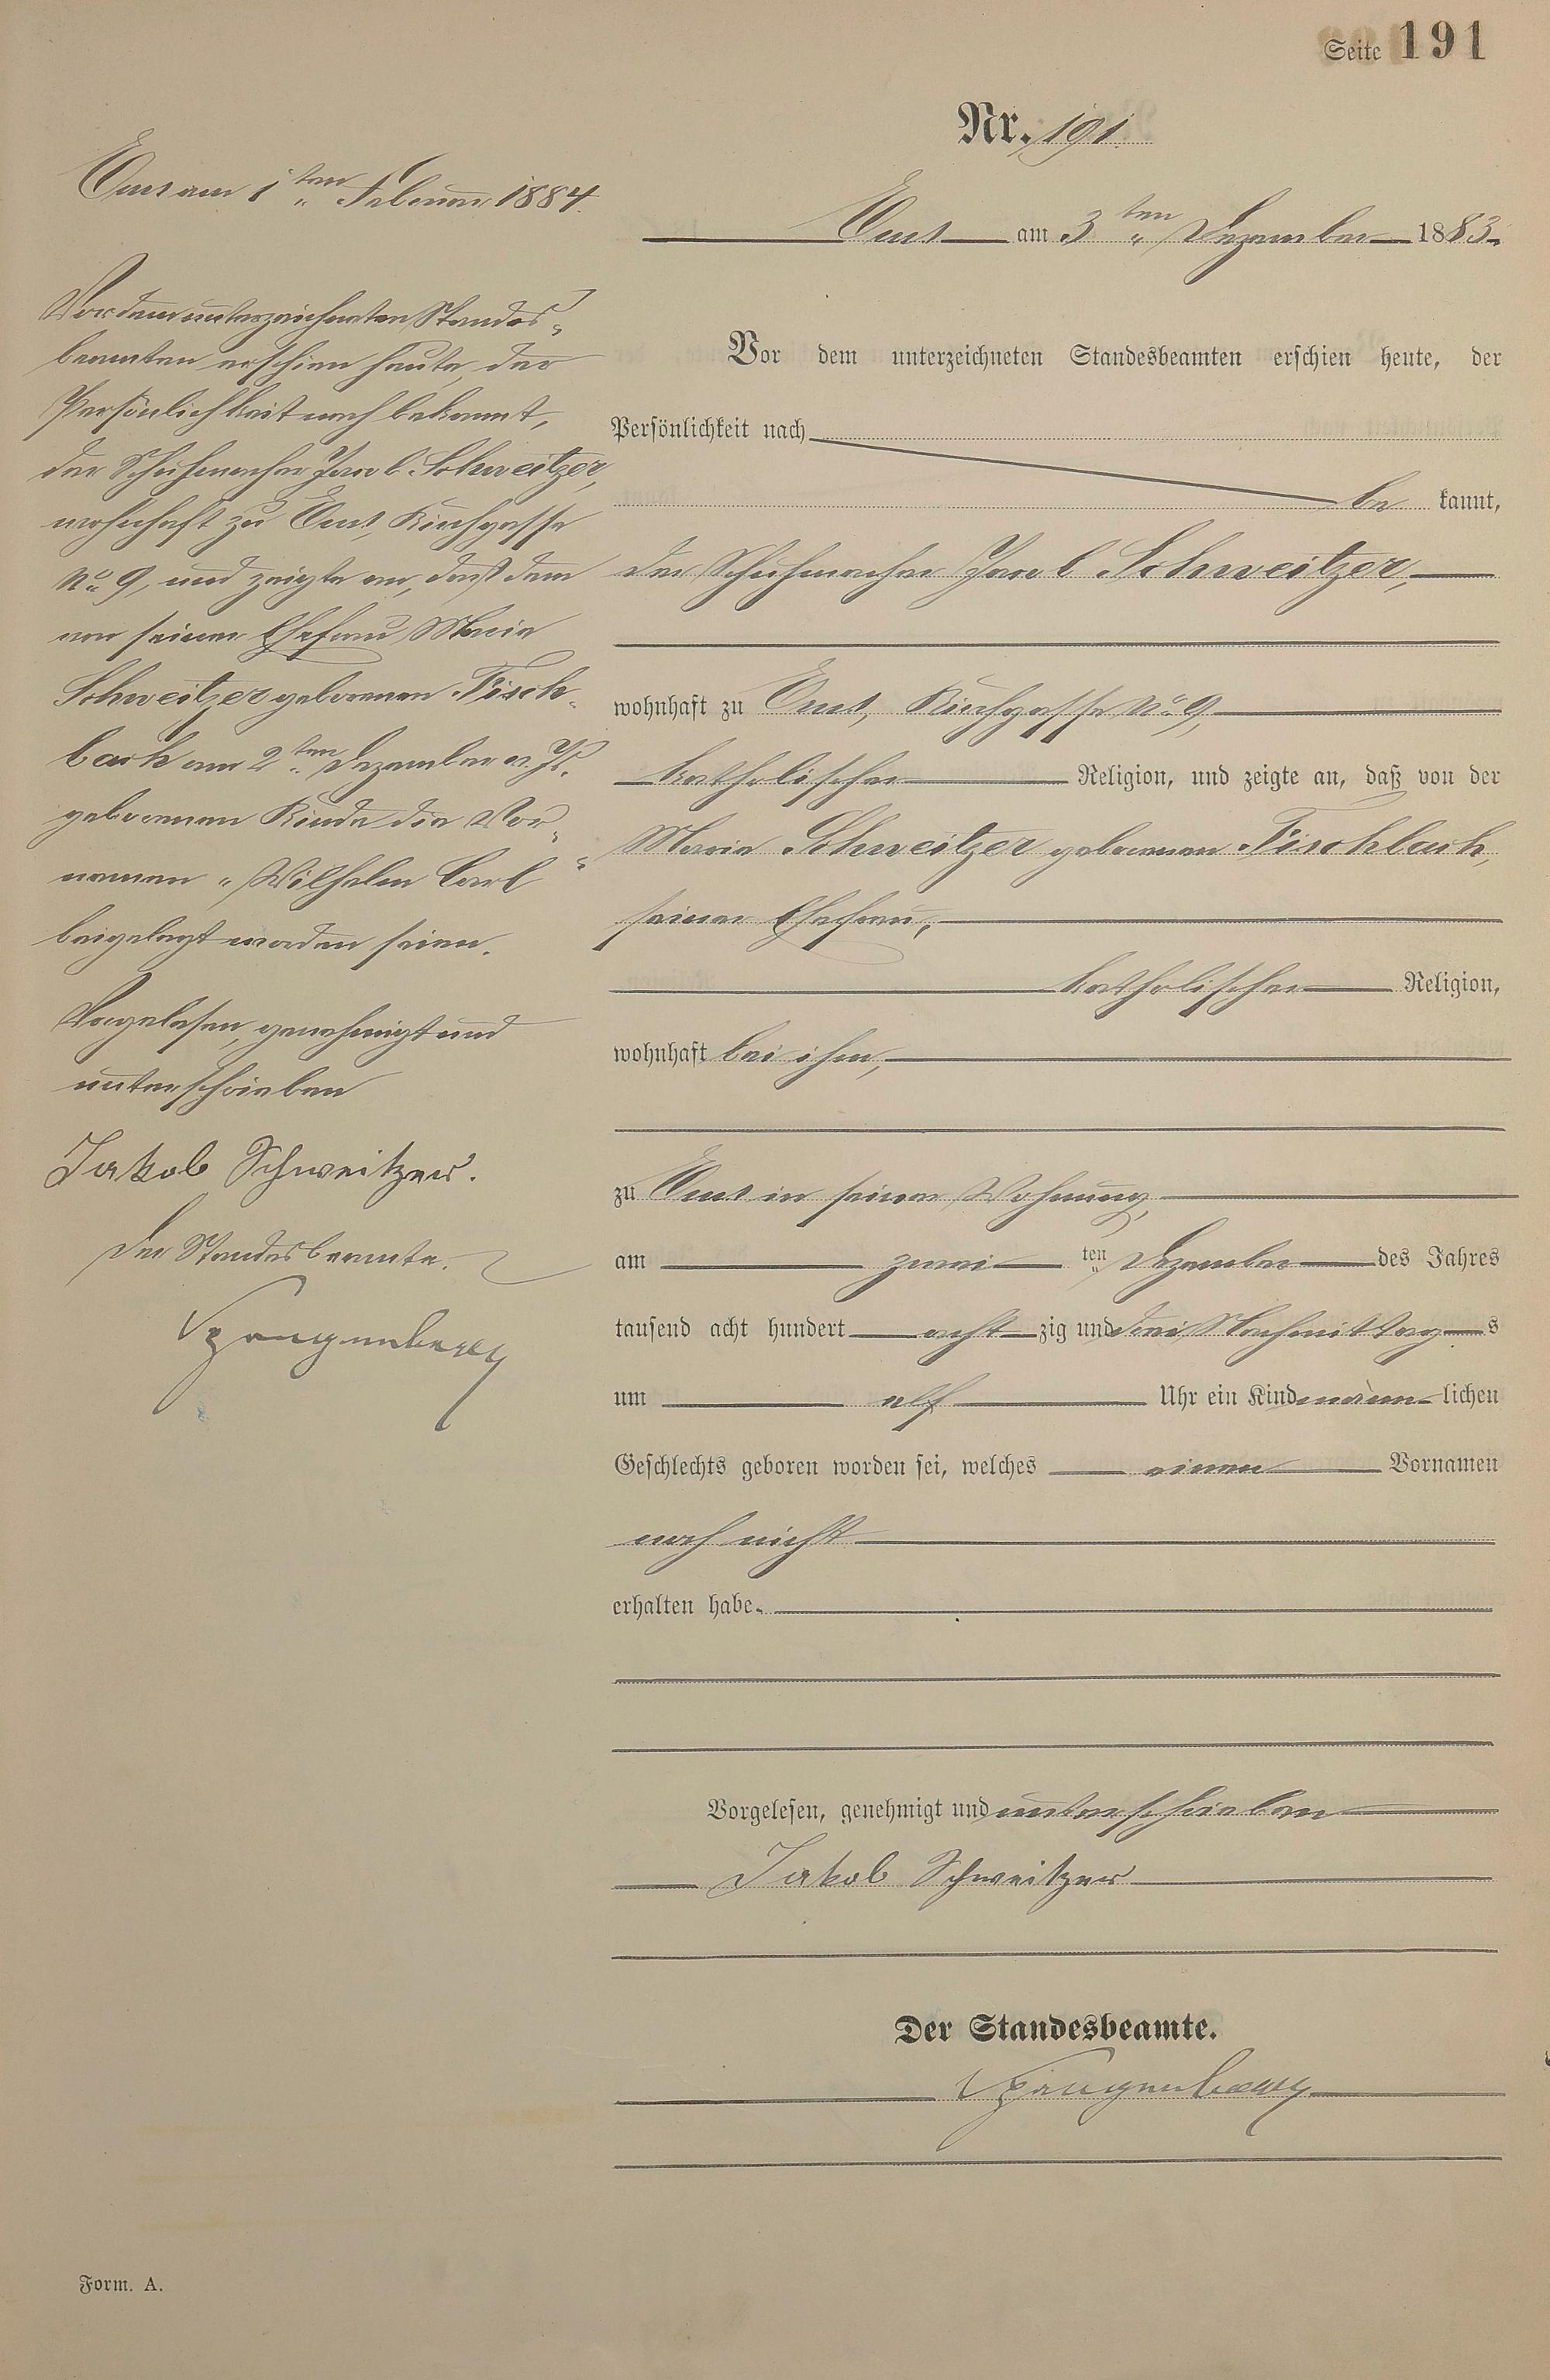 Seite 191
Nr. 191.
Ems am 3ten Dezember 1883.
Vor dem unterzeichneten Standesbeamten erschien heute, der
Persönlichkeit nach
be kannt,
der Schuhmacher Jacob Schweitzer,
wohnhaft zu Ems, Kirchgasse No 9,
katholischer Religion, und zeigte an, daß von der
Maria Schweitzer geborenen Fischbach,
seiner Ehefrau,
katholischer Religion,
wohnhaft bei ihm,
zu Ems in seiner Wohnung,
am zwei ten Dezember des Jahres
tausend acht hundert acht zig und drei Nachmittag s
um elf Uhr ein Kind männ lichen
Geschlechts geboren worden sei, welches einen Vornamen
noch nicht
erhalten habe.
Vorgelesen, genehmigt und unterschrieben
Jakob Schweitzer
Der Standesbeamte.
Ems am 1ten Februar 1884.
Vor dem unterzeichneten Standes-
beamten erschien heute, der
Persönlichkeit nach bekannt,
der Schuhmacher Jacob Schweitzer,
wohnhaft zu Ems, Kirchgasse
No 9, und zeigte an, daß dem
von seiner Ehefrau Maria
Schweitzer geborenen Fisch-
bach am 2ten Dezember v. Js.
geborenen Kinde die Vor-
namen "Wilhelm Carl"
beigelegt worden seien.
Vorgelesen, genehmigt und
unterschrieben
Jakob Schweitzer.
Der Standesbeamte.
Form. A.